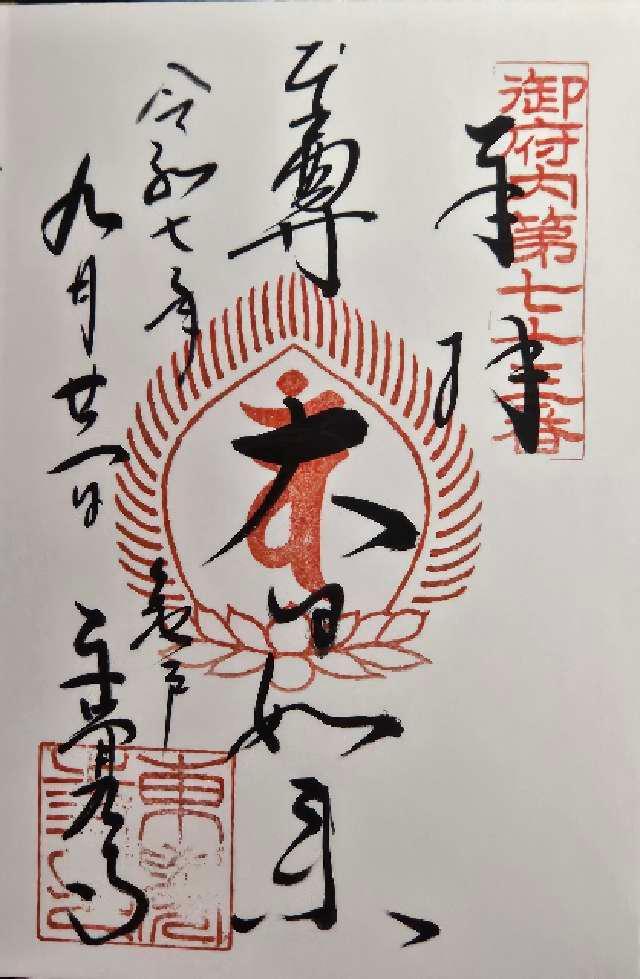 御府内第七十三番
奉拝
本尊
大日如来
令和七年
九月廿一日
亀戸
東覚寺